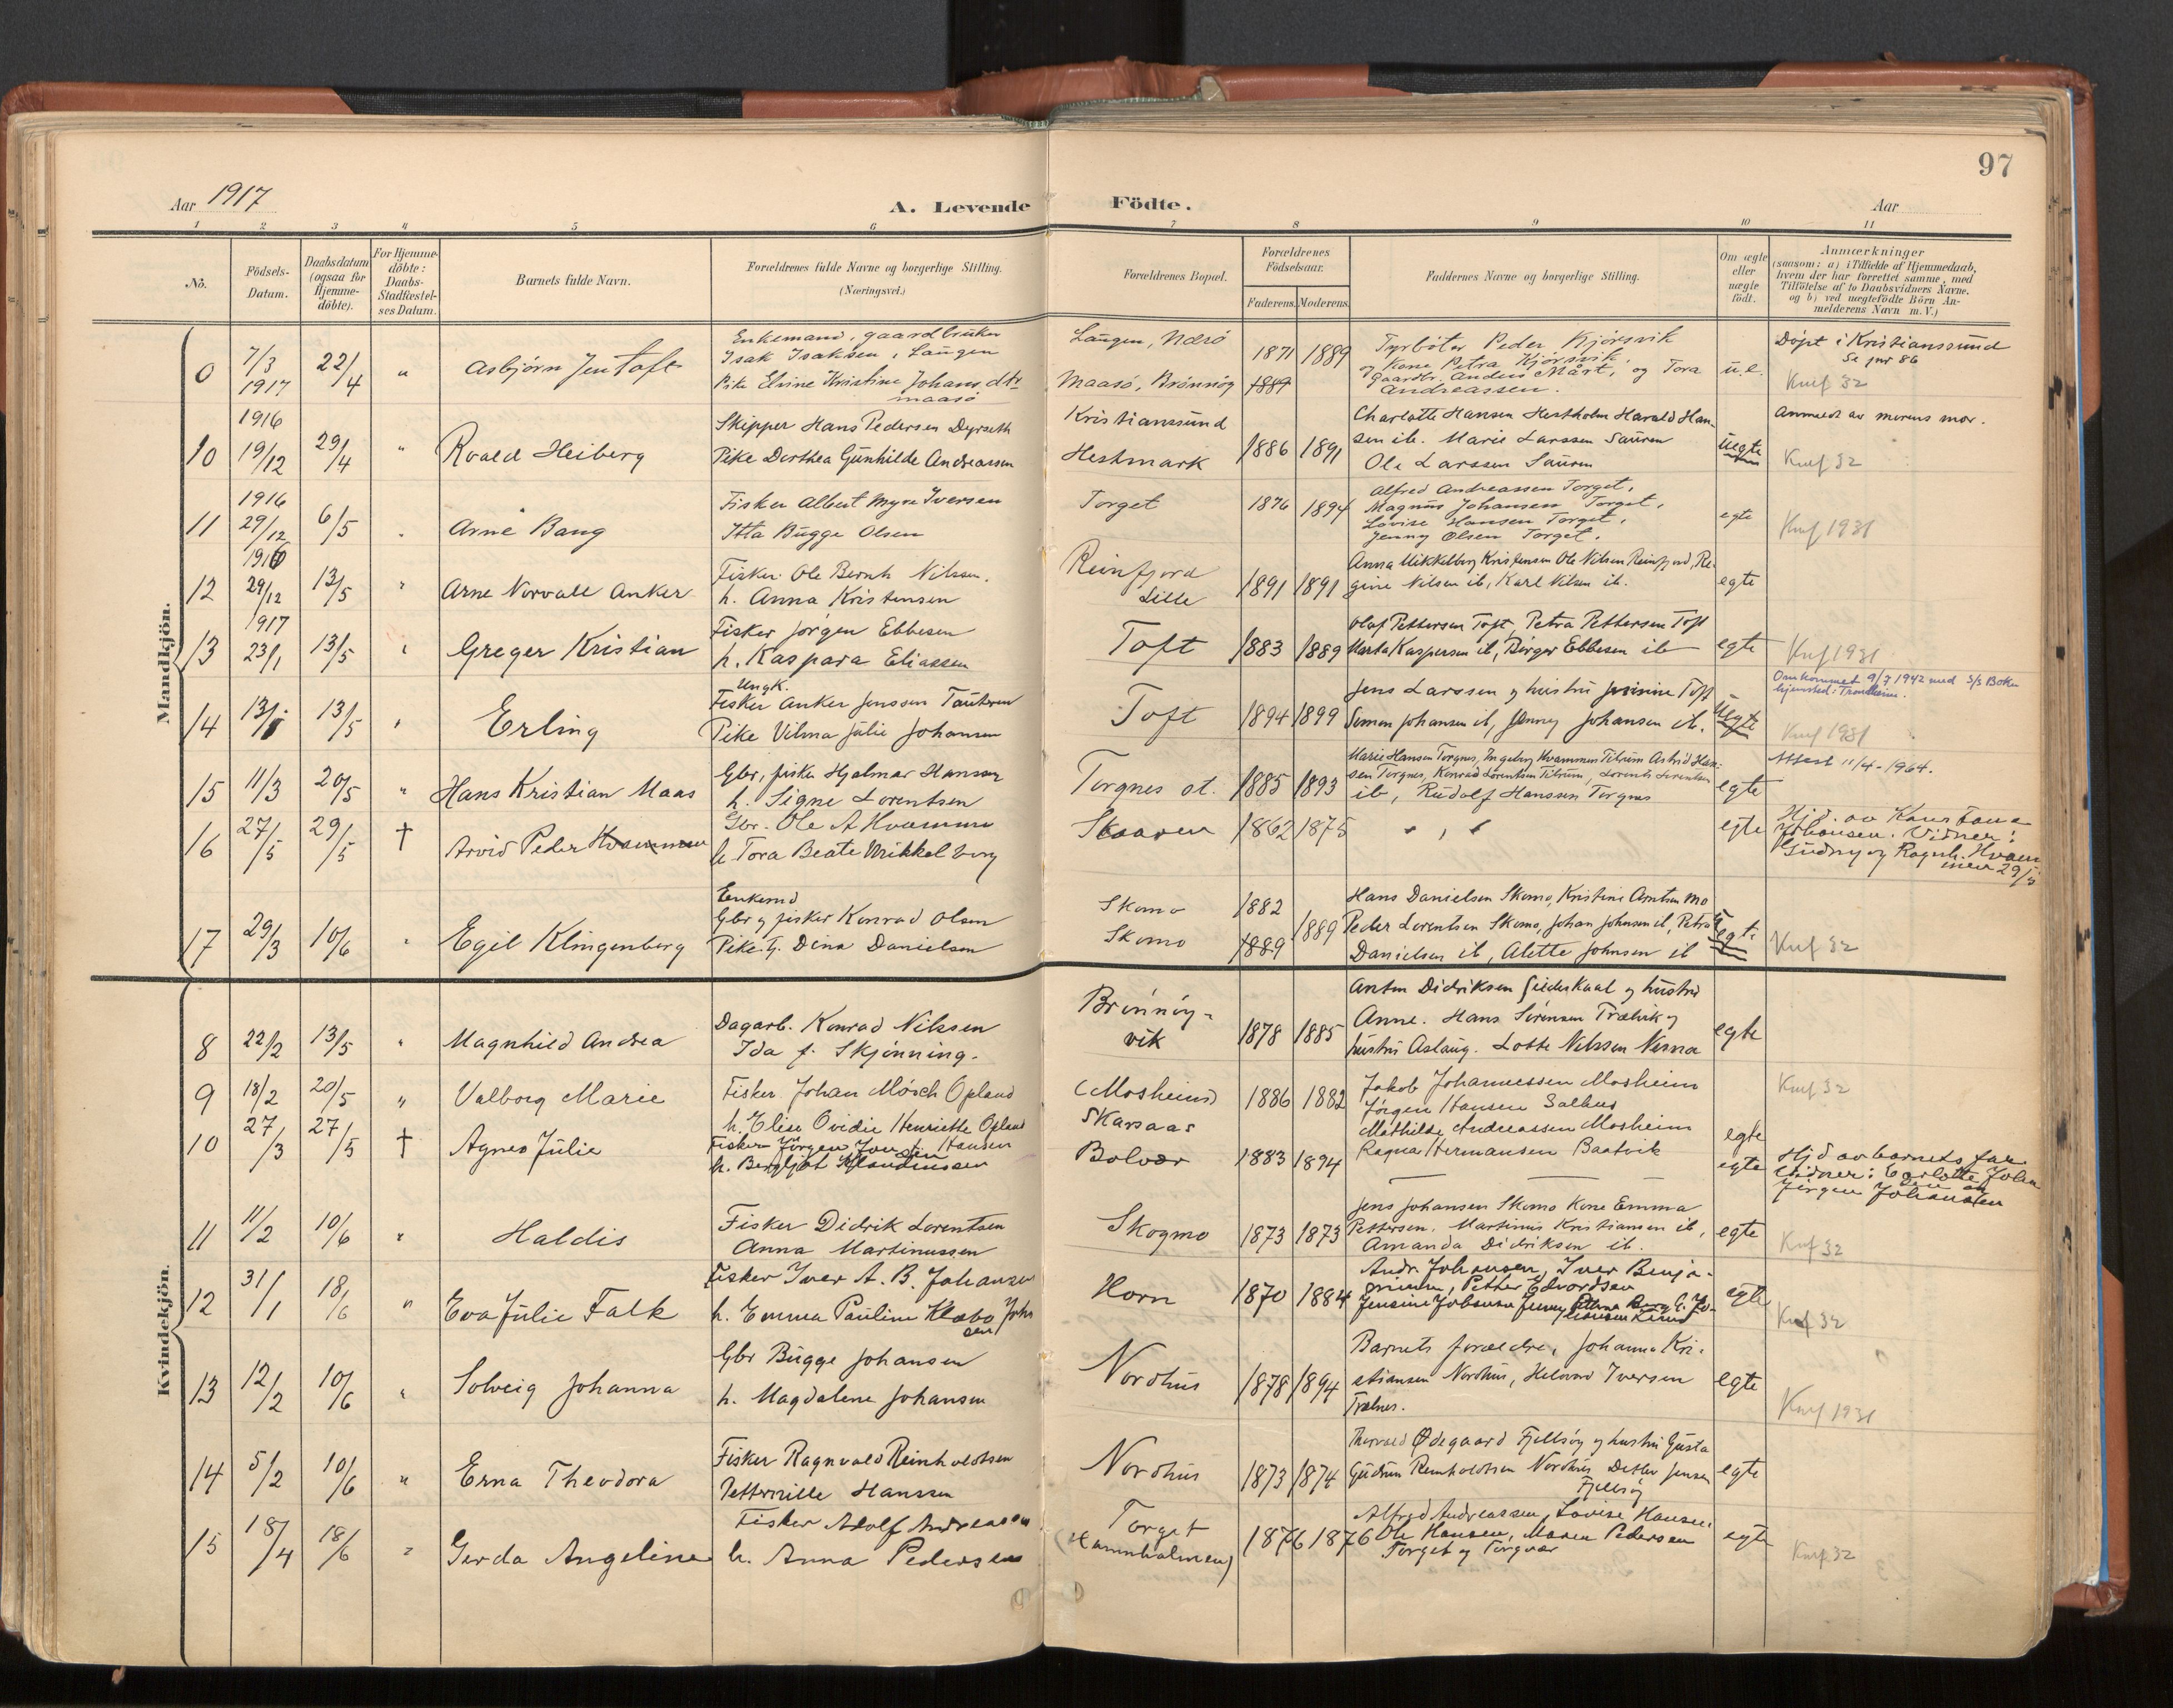 97
Aar 1917
A. Levende Födte.
Aar
1 2 3 4 5 6 7 8 9 10 11
Nö.
Födsels-
Datum.
Daabsdatum
(ogsaa for
Hjemme-
döbte).
For Hjemme-
döbte:
Daabs-
Stadfæstel-
ses Datum.
Barnets fulde Navn.
Forældrenes fulde Navne og borgerlige Stilling.
(Næringsvei.)
Forældrenes Bopæl.
Forældrenes
Födselsaar.
Faderens. Moderens.
Faddernes Navne og borgerlige Stilling.
Om ægte
eller
uægte
födt.
Anmærkninger
(saasom: a) i Tilfælde af Hjemmedaab,
hvem der har forrettet samme, med
Tilföielse af to Daabsvidners Navne.
og b) ved uægtefödte Börn An-
melderens Navn m. V.)
Mandkjön.
0
7/3
1917
22/4
"
Asbjørn Jentoft
Enkemand, gaardbruker
Isak Isaksen, Laugen
Pike Elvine Kristine Johansdtr
Maasø
Laugen, Nærø
Maasø, Brønnøy
1871 1889
1889
Fyrbøter Peder Kjørsvik
og kone Petra Kjørsvik,
Gaardbr. Anders Mårt, og Tora
Andreassen.
u.e.
Døpt i Kristianssund
Se pnr 86
Knf 32
10
1916
19/12
29/4
"
Roald Heiberg
Skipper Hans Pedersen Dyrseth
Pike Dorthea Gunhilde Andreassen
Kristianssund
Hestmark
1886 1891
Charlotte Hansen Hestholm Harald Han-
sen ib. Marie Larssen Sauren
Ole Larssen Sauren
Uegte
Anmeldt av morens mor.
Knf 32
11
1916
29/12
6/5
"
Arne Bang
Fisker Albert Myre Iversen
Itta Bugge Olsen
Torget
1876 1894
Alfred Andreassen Torget,
Magnus Johansen Torget,
Lovise Hansen Torget,
Jenny Olsen Torget.
egte
Knf 1931
12
1916
29/12
13/5
"
Arne Norvall Anker
Fisker Ole Bernh Nilssen.
h. Anna Kristensen
Reinfjord
Lille
1891 1891
Anna Mikkelborg Kristensen Ole Nilsen Reinfjord, Re-
gine Nilsen ib, Karl Nilsen ib.
egte
13
1917
23/1
13/5
"
Greger Kristian
Fisker Jørgen Ebbesen
h. Kaspara Eliassen
Toft
1883 1889
Olaf Pettersen Toft, Petra Pettersen Toft
Marta Kaspersen ib, Birger Ebbesen ib
egte
Knf 1931
14
13/5
"
Erling
Ungk.
Fisker Anker Jenssen Tautern
Pike Vilma Julie Johansen
Toft
1894 1899
Jens Larssen og hustru Toft
Simon Johansen ib, Jenny Johansen ib.
Uegte
Omkommet 9/7 1942 med S/S Boku
hjemsted: Trondheim.
Knf 1931
15
11/3
20/5
"
Hans Kristian Maas
Gbr, fisker Hjalmar Hansen
h. Signe Lorentsen
Torgnes ot.
1885 1893
Marie Hansen Torgnes, Ingeborg Kvammen Tilrum Astrid Han-
sen Torgnes, Konrad Lorentsen Tilrum, Lorents Lorentsen
ib, Rudolf Hanssen Torgnes
egte
Attest 11/4-1964.
16
27/5
29/5
†
Arvid Peder Kvammen
Gbr. Ole A Kvammen
h. Tora Beate Mikkelborg
Skaaren
1862 1875
" , "
egte
Hjd. av Kone Jana
Johansen. Vidner:
Gudny og Ragnh. Hvam
men 29/5
17
29/3
10/6
"
Egil Klingenberg
Enkemd
Gbr og fisker Konrad Olsen
Pike Tj. Dina Danielsen
Skomo
Skomo
1882
1889
1889
Hans Danielsen Skomo, Kristine Arntsen Mo
Peder Lorentsen Skomo, Johan Johnsen ib, Petra
Danielsen ib, Alette Johnsen ib
Uegte
Knf 32
Kvindekjön.
8
22/2
13/5
"
Magnhild Andrea
Dagarb. Konrad Nilssen
Ida f. Skjønning.
Brønnøy-
vik
1878 1885
Anton Didriksen Gildeskaal og hustru
Anne. Hans Sørensen Trælvik og
hustru Aslaug. Lotte Nilssen Nesna
egte
9
18/2
20/5
"
Valborg Marie
Fisker Johan Mørch Opland
h. Elise Ovidie Henriette Opland
(Mosheim)
Skarsaas
1886 1882
Jakob Johannessen Mosheim
Jørgen Hansen Salhus
Mathilde Andreassen Mosheim
Ragna Hermansen Baatvik
egte
Knf 32
10
27/3
27/5
†
Agnes Julie
Fisker Jørgen Hansen
h. Bergljot Klaudiussen
Bolvær
1883 1894
—
egte
Hjd av barnets far
Vidner: Carlotte Johan
sen og
Jørgen Johansen
11
11/2
10/6
"
Haldis
Fisker Didrik Lorentsen
Anna Martinussen
Skogmo
1873 1873
Jens Johansen Skomo Kone Emma
Pettersen. Martinus Kristiansen ib,
Amanda Didriksen ib.
egte
Knf 32
12
31/1
18/6
"
Eva Julie Falk
Fisker Iver A. B. Johansen
h. Emma Pauline Klabo Joh
sen
Horn
1870 1884
Andr. Johansen, Iver Benja-
minsen, Petter Edvardsen
Jensine Johansen Jenny
egte
Knf 32
13
12/2
10/6
"
Solveig Johanna
Gbr Bugge Johansen
h. Magdalene Johansen
Nordhus
1878 1894
Barnets forældre, Johanna Kri-
stiansen Nordhus, Helvard Iversen
Trælnes.
egte
Knf 1931
14
5/2
10/6
"
Erna Theodora
Fisker Ragnvald Reinholdtsen
Petternille Hanssen
Nordhus
1873 1874
Thorvald Ødegaard Fjellsøy og hustru Gusta
Gudrun Reinholdtsen Nordhus Detlev Jensen
Fjellsøy
egte
15
18/4
18/6
"
Gerda Angeline
Fisker Adolf Andreassen
h. Anna Pedersen
Torget
(Hamnholmen)
1876 1876
Alfred Andreassen, Lovise Hansen
Ole Hansen, Maren Pedersen
Torget og Torgvær
egte
Knf 32